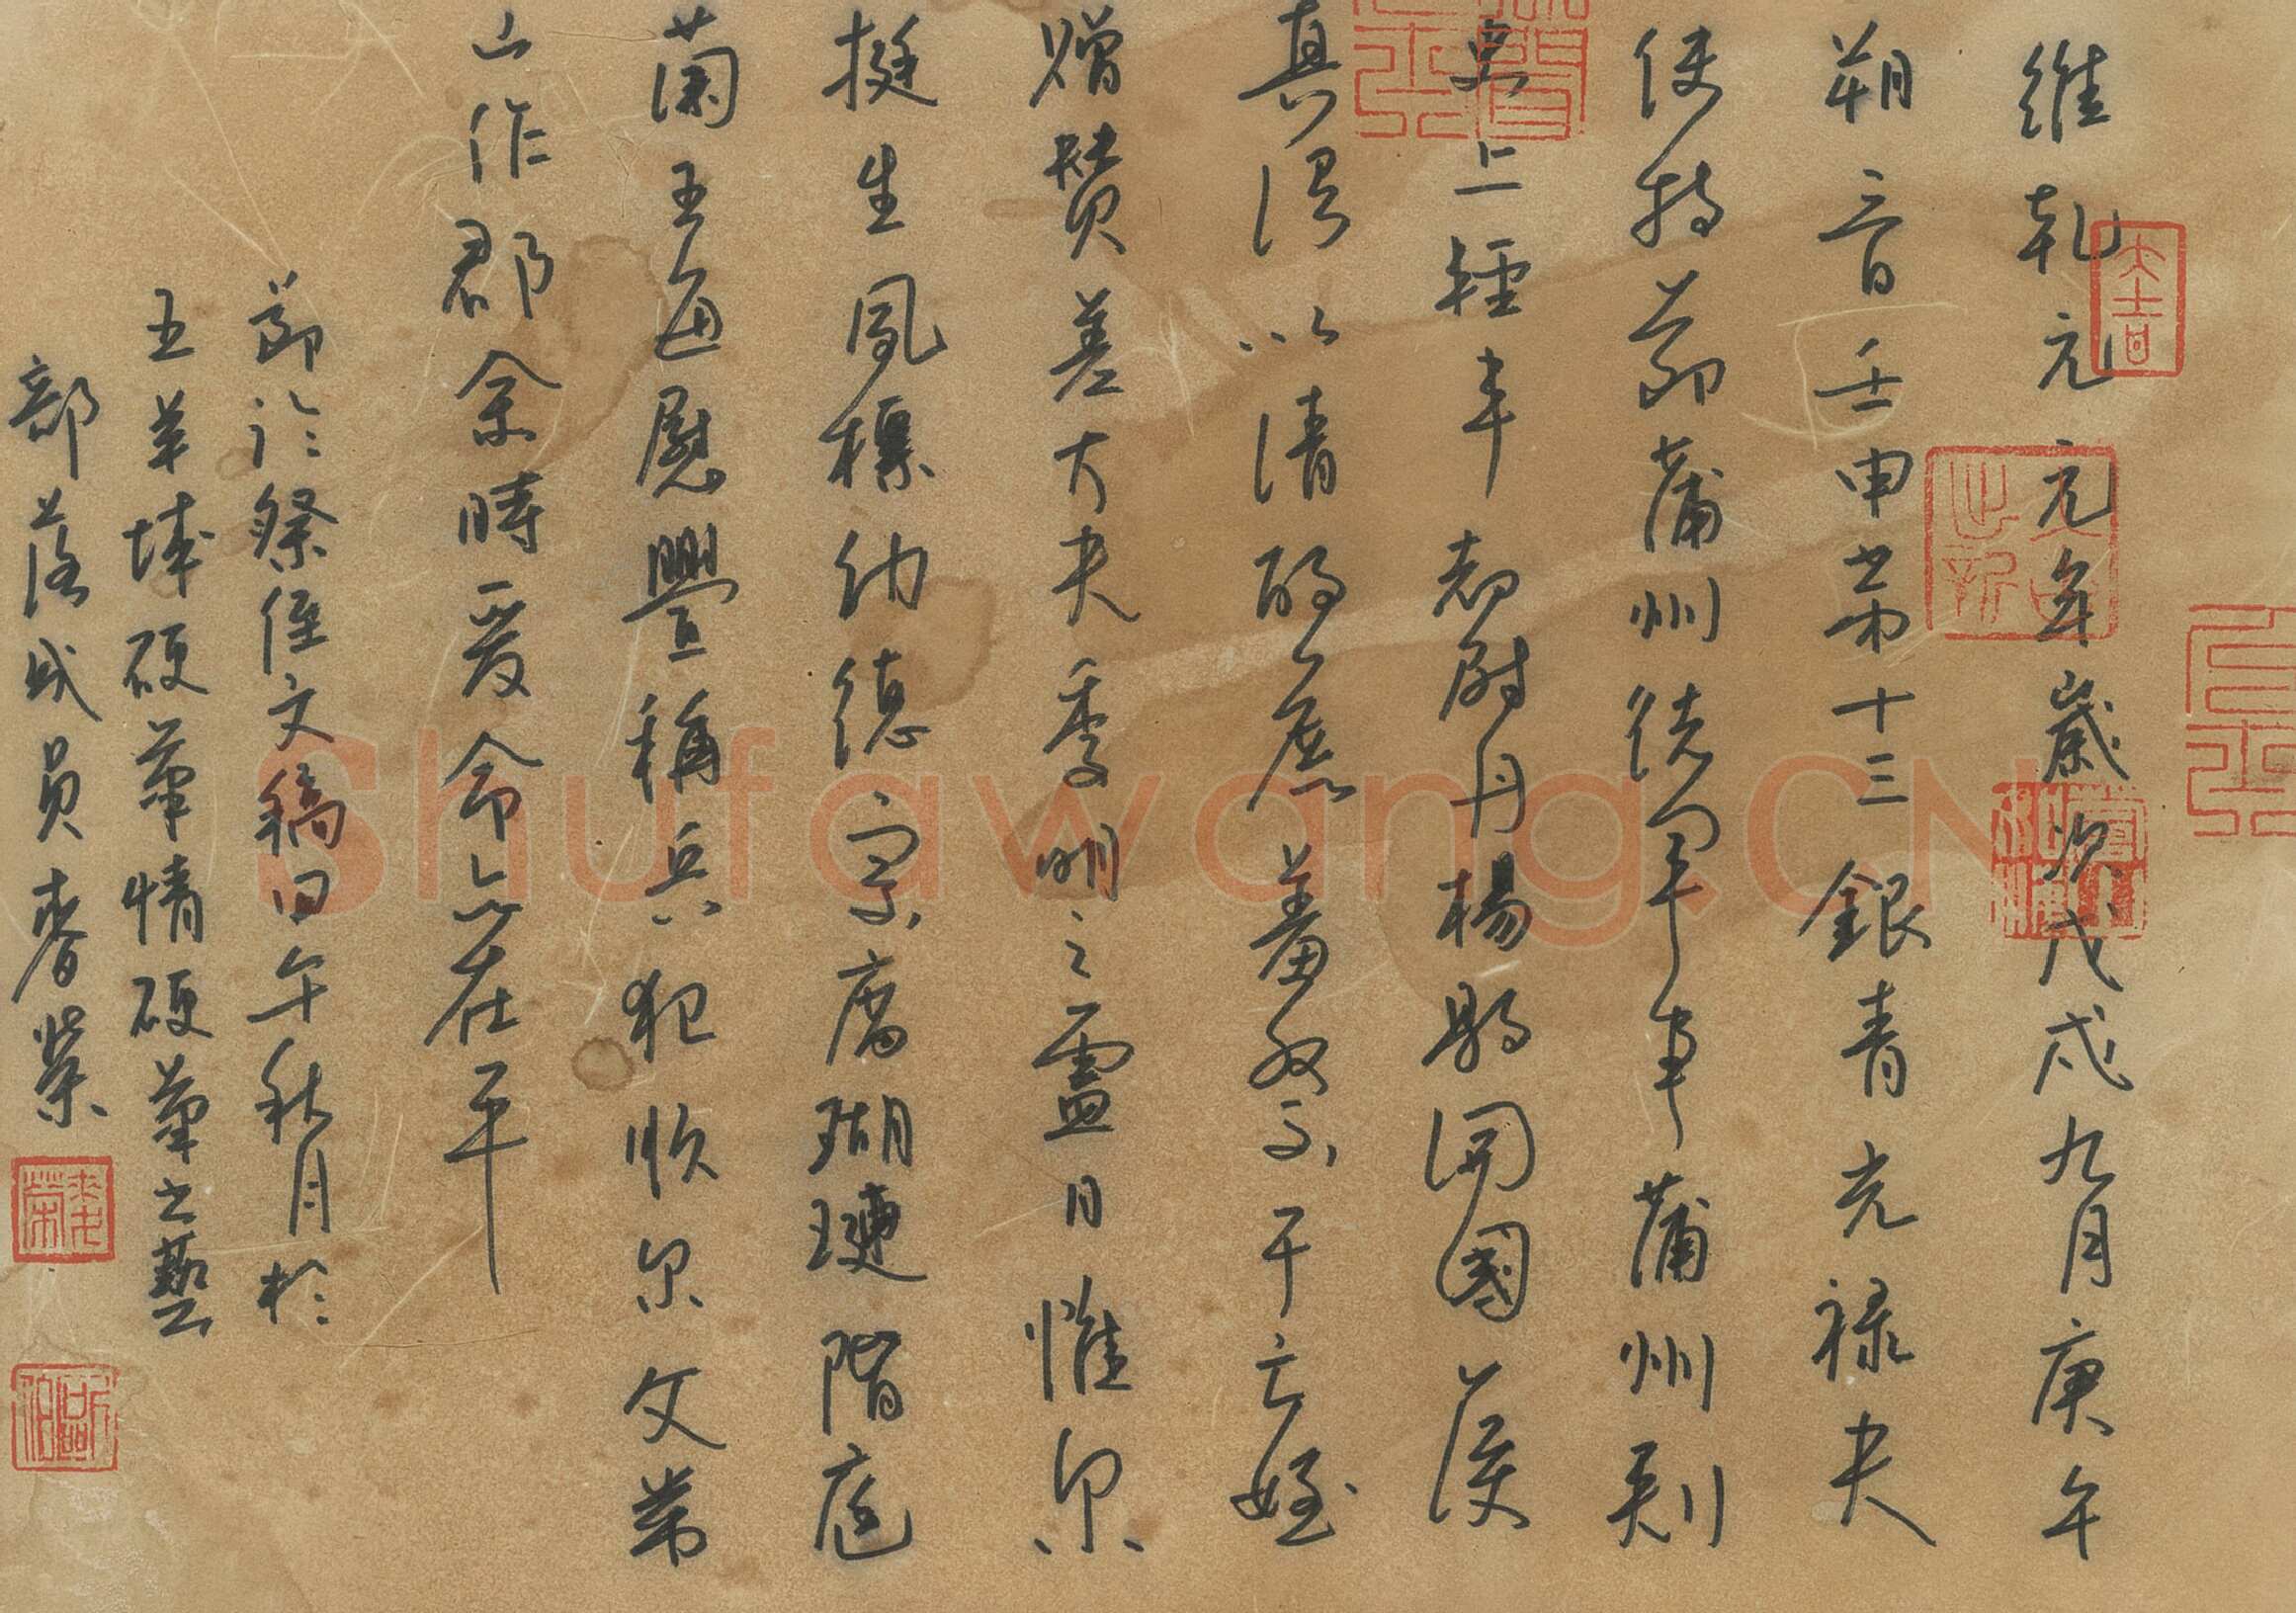 維乾元元年歲次戊戌九月庚午
朔三日壬申第十三銀青光禄夫
使持節蒲州諸軍事蒲州刺
史上輕車都尉丹楊縣開國侯
真卿以清酌庶羞祭于亡姪
贈贊善大夫季明之靈曰惟尔
挺生夙標幼德宗廟瑚璉階庭
蘭玉每慰豐稱兵犯順尔父第
山作郡余時受命亦在平
節論祭侄文稿丙午秋月於
五羊城硬筆情硬筆之藝
部落成員春榮
大吉
Shufawang.CN